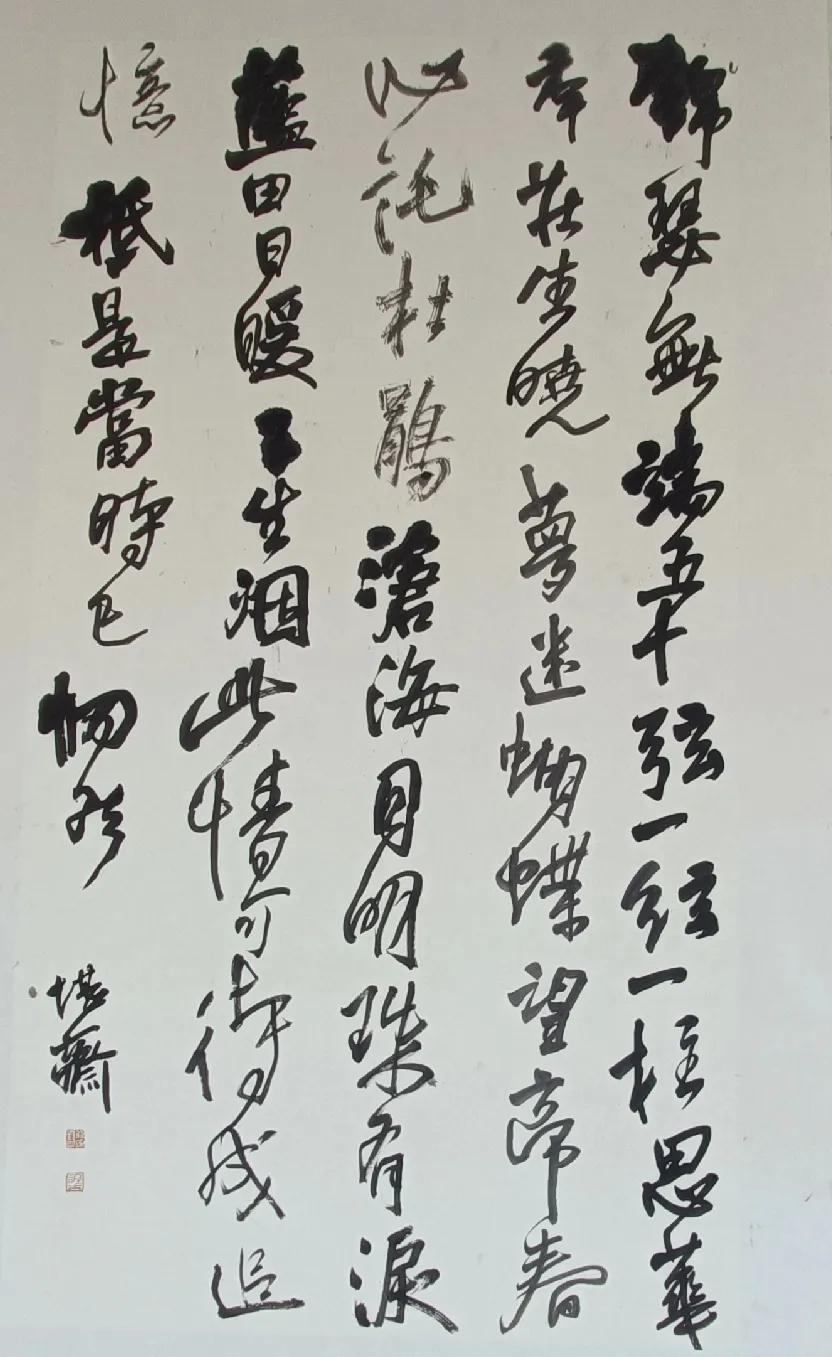 錦瑟無端五十弦一絃一柱思華
年莊生曉夢迷蝴蝶望帝春
心託杜鵑滄海月明珠有淚
藍田日暖玉生烟此情可待成追
憶祗是當時已惘然
堪齋